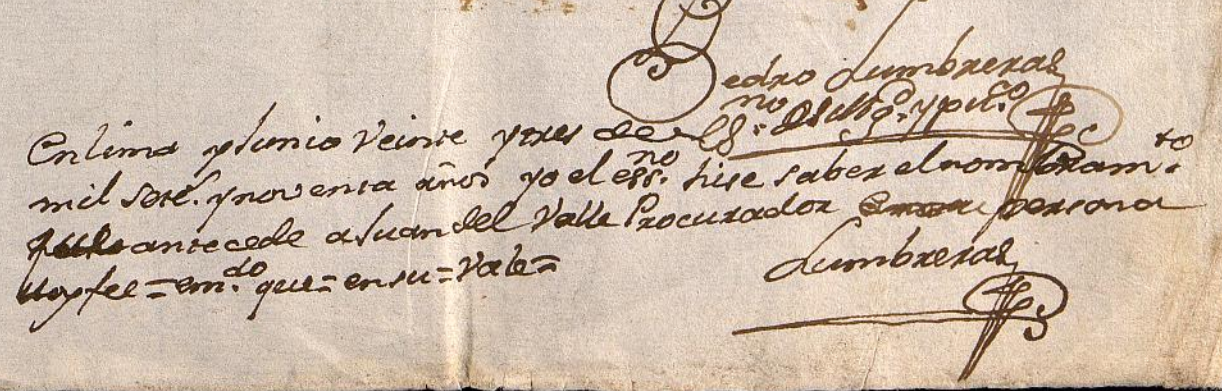 Pedro Lumbreras
Es.no de Su Mg.d y pu.co
En lima y Junio Veinte y tres de
mil sete.s y noventa años yo el ess.no hise saber el nombram.to
que antecede a Juan del Valle Procurador en su persona
doy fee = em.do que = en su = Vale =
Lumbreras